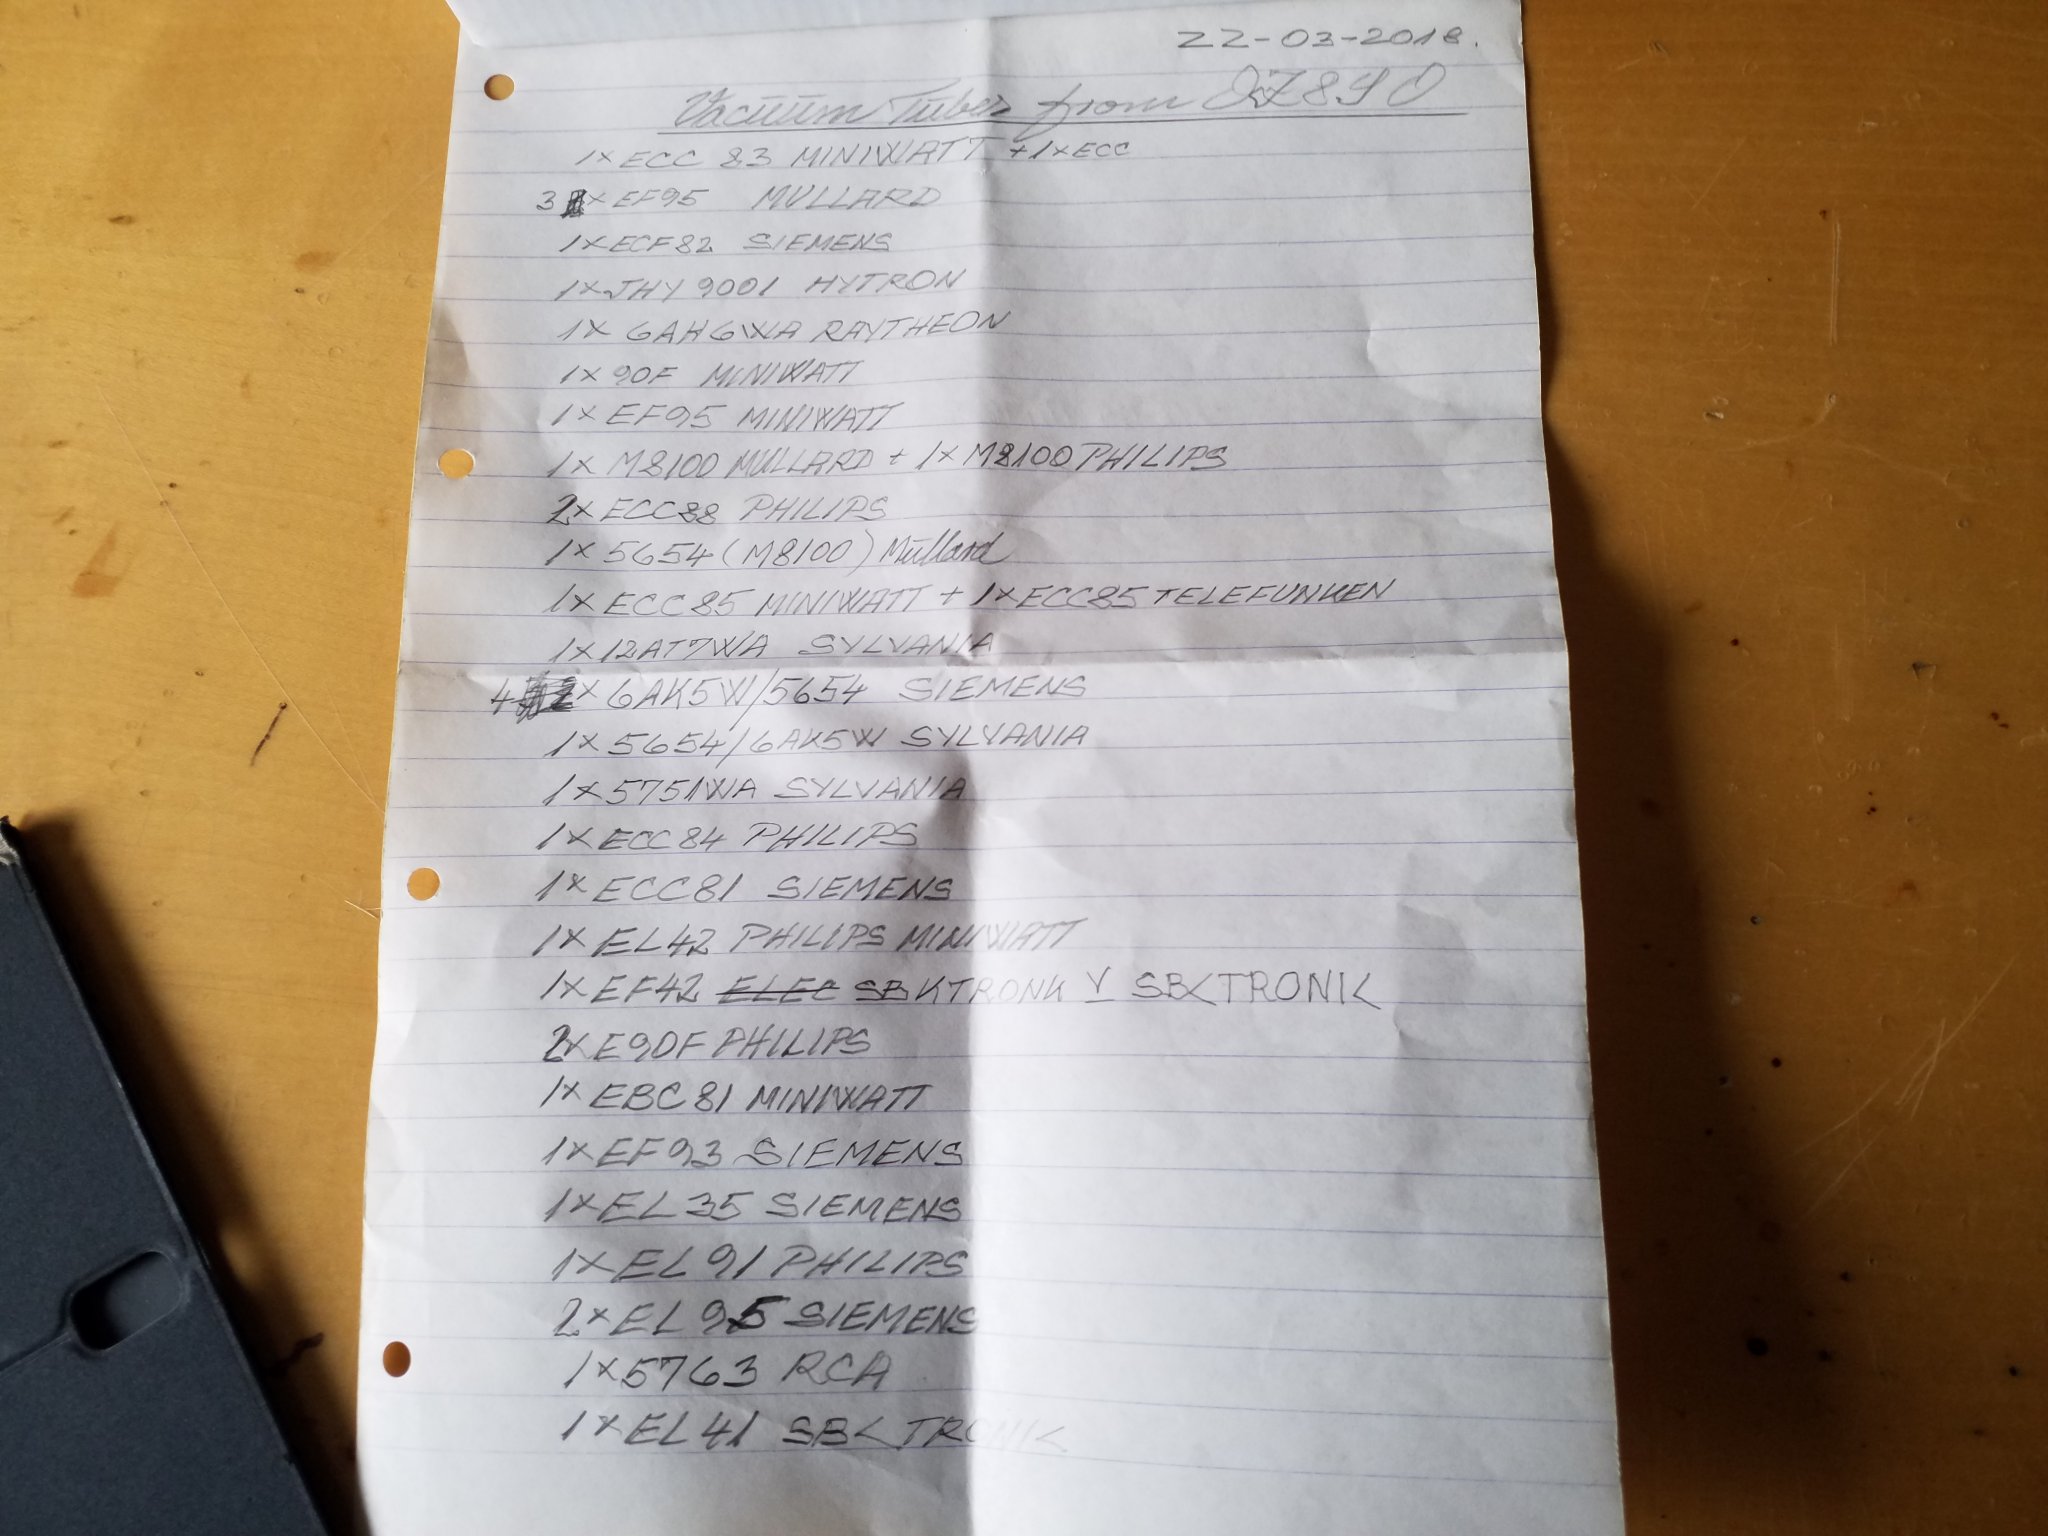 22-03-2018.
Vacuüm Tubes from
1x ECC 83 MINIWATT + 1x ECC
3 x EF95 MULLARD
1x ECF82 SIEMENS
1x JHY 9001 HYTRON
1x 6AH6WA RAYTHEON
1x 90F MINIWATT
1x EF95 MINIWATT
1x M8100 MULLARD + 1x M8100 PHILIPS
2x ECC88 PHILIPS
1x 5654 (M8100) Müllard
1x ECC85 MINIWATT + 1x ECC85 TELEFUNKEN
1x 12AT7WA SYLVANIA
4 x 6AK5W/5654 SIEMENS
1x 5654/6AK5W SYLVANIA
1x 5751WA SYLVANIA
1x ECC84 PHILIPS
1x ECC81 SIEMENS
1x EL42 PHILIPS MINIWATT
1x EF42 ELEC SBKTRONK V SBKTRONIK
2x E90F PHILIPS
1x EBC81 MINIWATT
1x EF93 SIEMENS
1x EL35 SIEMENS
1x EL91 PHILIPS
2x EL95 SIEMENS
1x 5763 RCA
1x EL41 SBKTRONIK